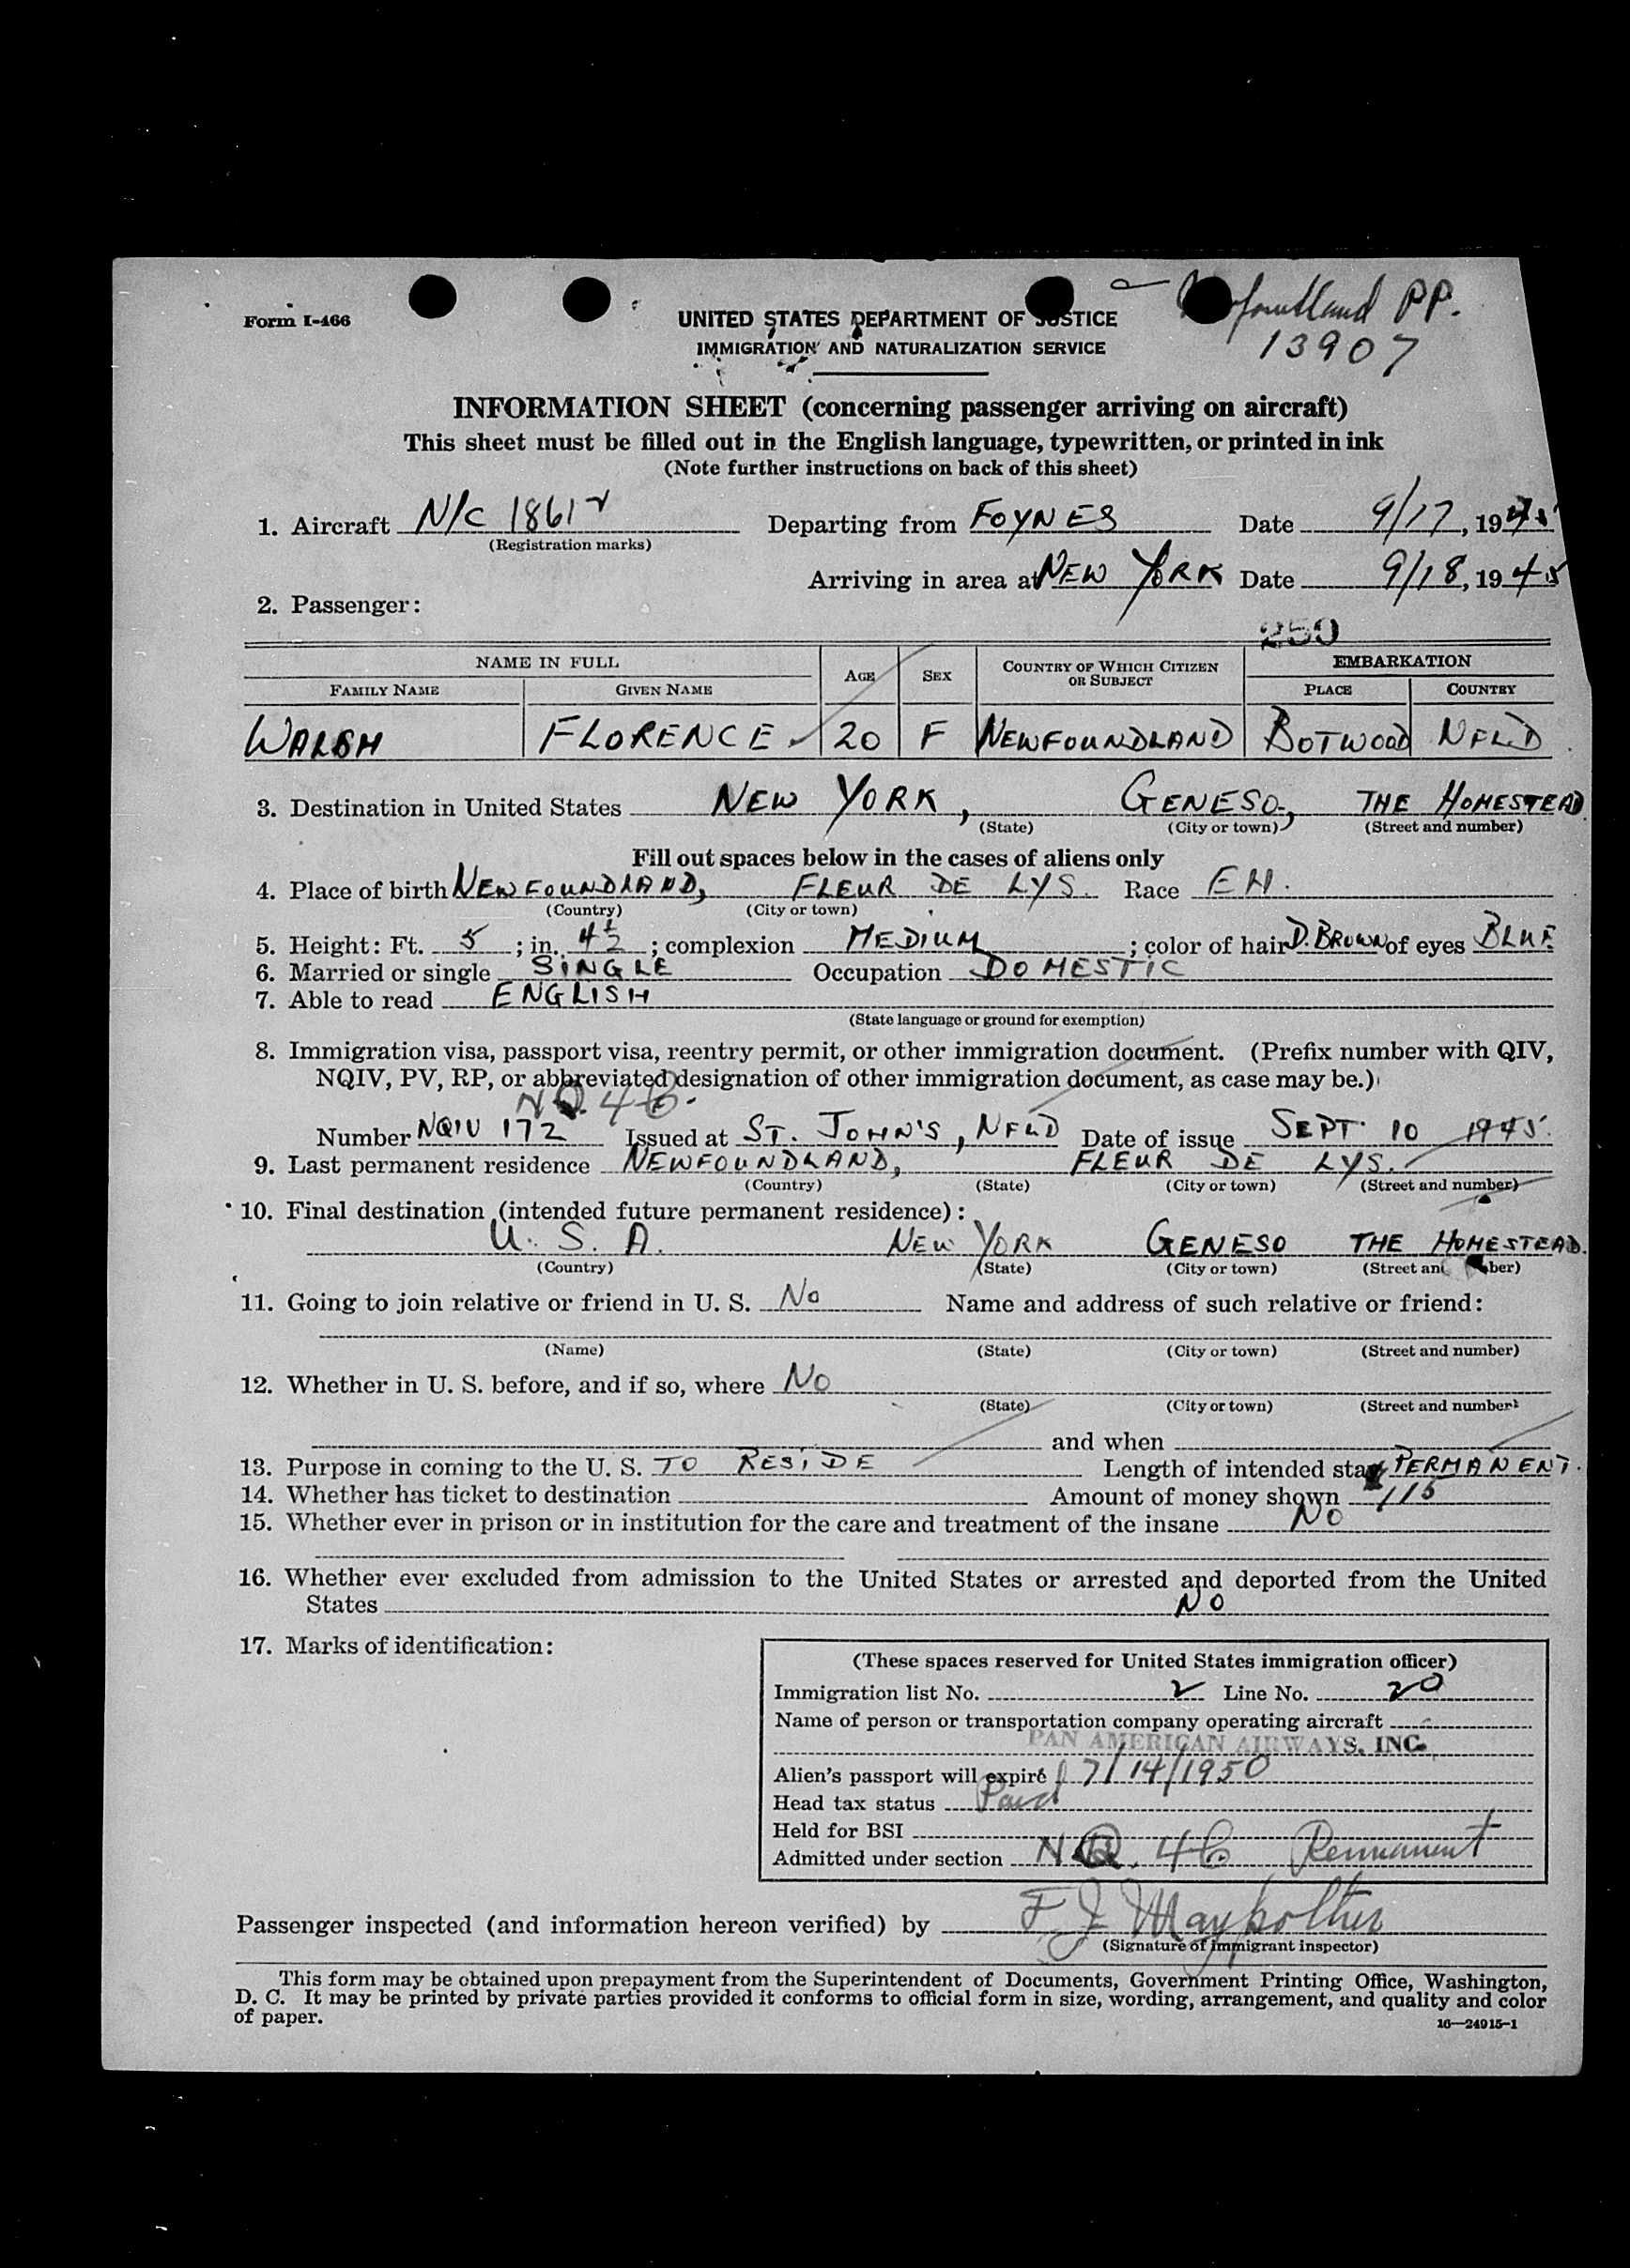 Form I-466
UNITED STATES DEPARTMENT OF JUSTICE
IMMIGRATION AND NATURALIZATION SERVICE
Newfoundland PP.
13907
INFORMATION SHEET (concerning passenger arriving on aircraft)
This sheet must be filled out in the English language, typewritten, or printed in ink
(Note further instructions on back of this sheet)
1. Aircraft N/C 18612 Departing from FOYNES Date 9/17, 1945
(Registration marks)
Arriving in area at NEW YORK Date 9/18, 1945
2. Passenger:
250
NAME IN FULL AGE SEX COUNTRY OF WHICH CITIZEN OR SUBJECT EMBARKATION
FAMILY NAME GIVEN NAME PLACE COUNTRY
WALSH FLORENCE 20 F NEWFOUNDLAND BOTWOOD NFLD
3. Destination in United States NEW YORK, GENESO, THE HOMESTEAD
(State) (City or town) (Street and number)
Fill out spaces below in the cases of aliens only
4. Place of birth NEWFOUNDLAND, FLEUR DE LYS. Race EN.
(Country) (City or town)
5. Height: Ft. 5; in. 4½; complexion MEDIUM; color of hair D. BROWN of eyes BLUE
6. Married or single SINGLE Occupation DOMESTIC
7. Able to read ENGLISH
(State language or ground for exemption)
8. Immigration visa, passport visa, reentry permit, or other immigration document. (Prefix number with QIV,
NQIV, PV, RP, or abbreviated designation of other immigration document, as case may be.)
NQ. 4C.
Number NQIV 172 Issued at ST. JOHN'S, NFLD Date of issue SEPT. 10 1945.
9. Last permanent residence NEWFOUNDLAND, FLEUR DE LYS.
(Country) (State) (City or town) (Street and number)
10. Final destination (intended future permanent residence):
U. S. A. NEW YORK GENESO THE HOMESTEAD.
(Country) (State) (City or town) (Street and number)
11. Going to join relative or friend in U. S. No Name and address of such relative or friend:
(Name) (State) (City or town) (Street and number)
12. Whether in U. S. before, and if so, where No
(State) (City or town) (Street and number)
and when
13. Purpose in coming to the U. S. TO RESIDE Length of intended stay PERMANENT.
14. Whether has ticket to destination Amount of money shown 115
15. Whether ever in prison or in institution for the care and treatment of the insane No
16. Whether ever excluded from admission to the United States or arrested and deported from the United
States NO
17. Marks of identification:
(These spaces reserved for United States immigration officer)
Immigration list No. 2 Line No. 20
Name of person or transportation company operating aircraft
PAN AMERICAN AIRWAYS, INC.
Alien's passport will expire 7/14/1950
Head tax status Paid
Held for BSI
Admitted under section NQ. 4C Permanent
Passenger inspected (and information hereon verified) by F J Maypother
(Signature of immigrant inspector)
This form may be obtained upon prepayment from the Superintendent of Documents, Government Printing Office, Washington,
D. C. It may be printed by private parties provided it conforms to official form in size, wording, arrangement, and quality and color
of paper.
16—24915-1